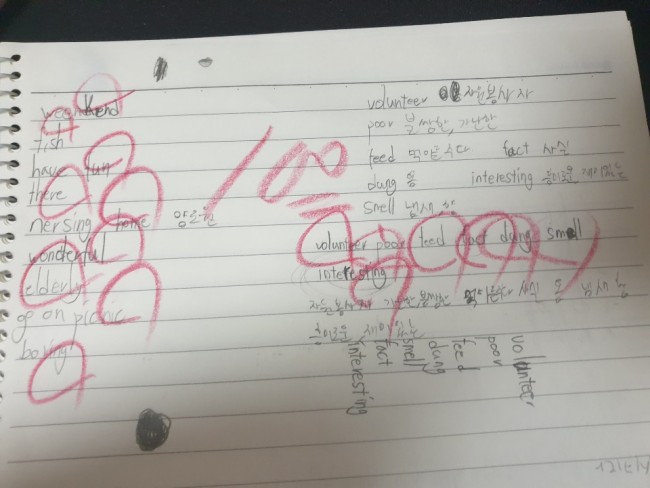 weekend
fish
have fun
there
nersing home 양로원
wonderful
elderly
go on picnic
boring
100
volunteer 자원봉사자
poor 불쌍한, 가난한
feed 먹이를 주다 fact 사실
dung 똥 interesting 흥미로운 재미있는
smell 냄새
volunteer poor feed fact dung smell
interesting
자원봉사자 가난한 불쌍한 사실 똥 냄새
흥미로운 재미있는
volunteer
poor
feed
dung
smell
fact
interesting